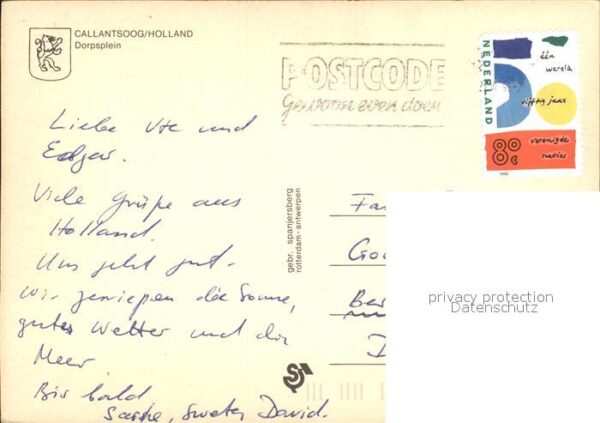 CALLANTSOOG/HOLLAND
Dorpsplein
POSTCODE
Gewoon even doen
NEDERLAND
één
wereld
vijftig jaar
verenigde
naties
80c
1995
Liebe Ute und
Edgar.
Viele Grüße aus
Holland.
Uns geht gut.
wir genießen die Sonne,
gutes Wetter und die
Meer.
Bis bald
David.
gebr. spanjersberg
rotterdam - antwerpen
Fa
Go
Be
D
privacy protection
Datenschutz